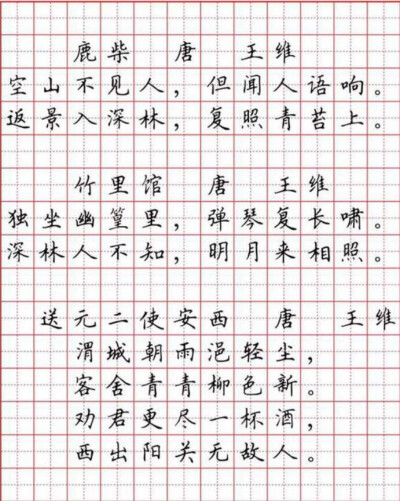 鹿柴 唐 王维
空山不见人，但闻人语响。
返景入深林，复照青苔上。
竹里馆 唐 王维
独坐幽篁里，弹琴复长啸。
深林人不知，明月来相照。
送元二使安西 唐 王维
渭城朝雨浥轻尘，
客舍青青柳色新。
劝君更尽一杯酒，
西出阳关无故人。